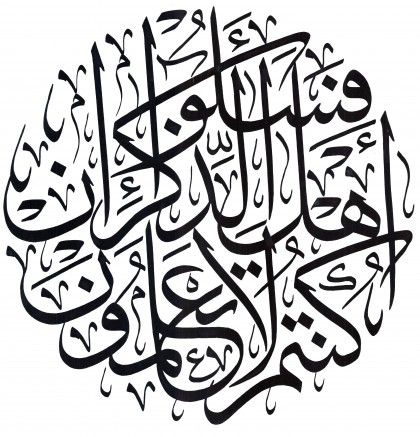 فَسْـَٔلُوٓا۟
أَهْلَ ٱلذِّكْرِ إِن
كُنتُمْ لَا تَعْلَمُونَ